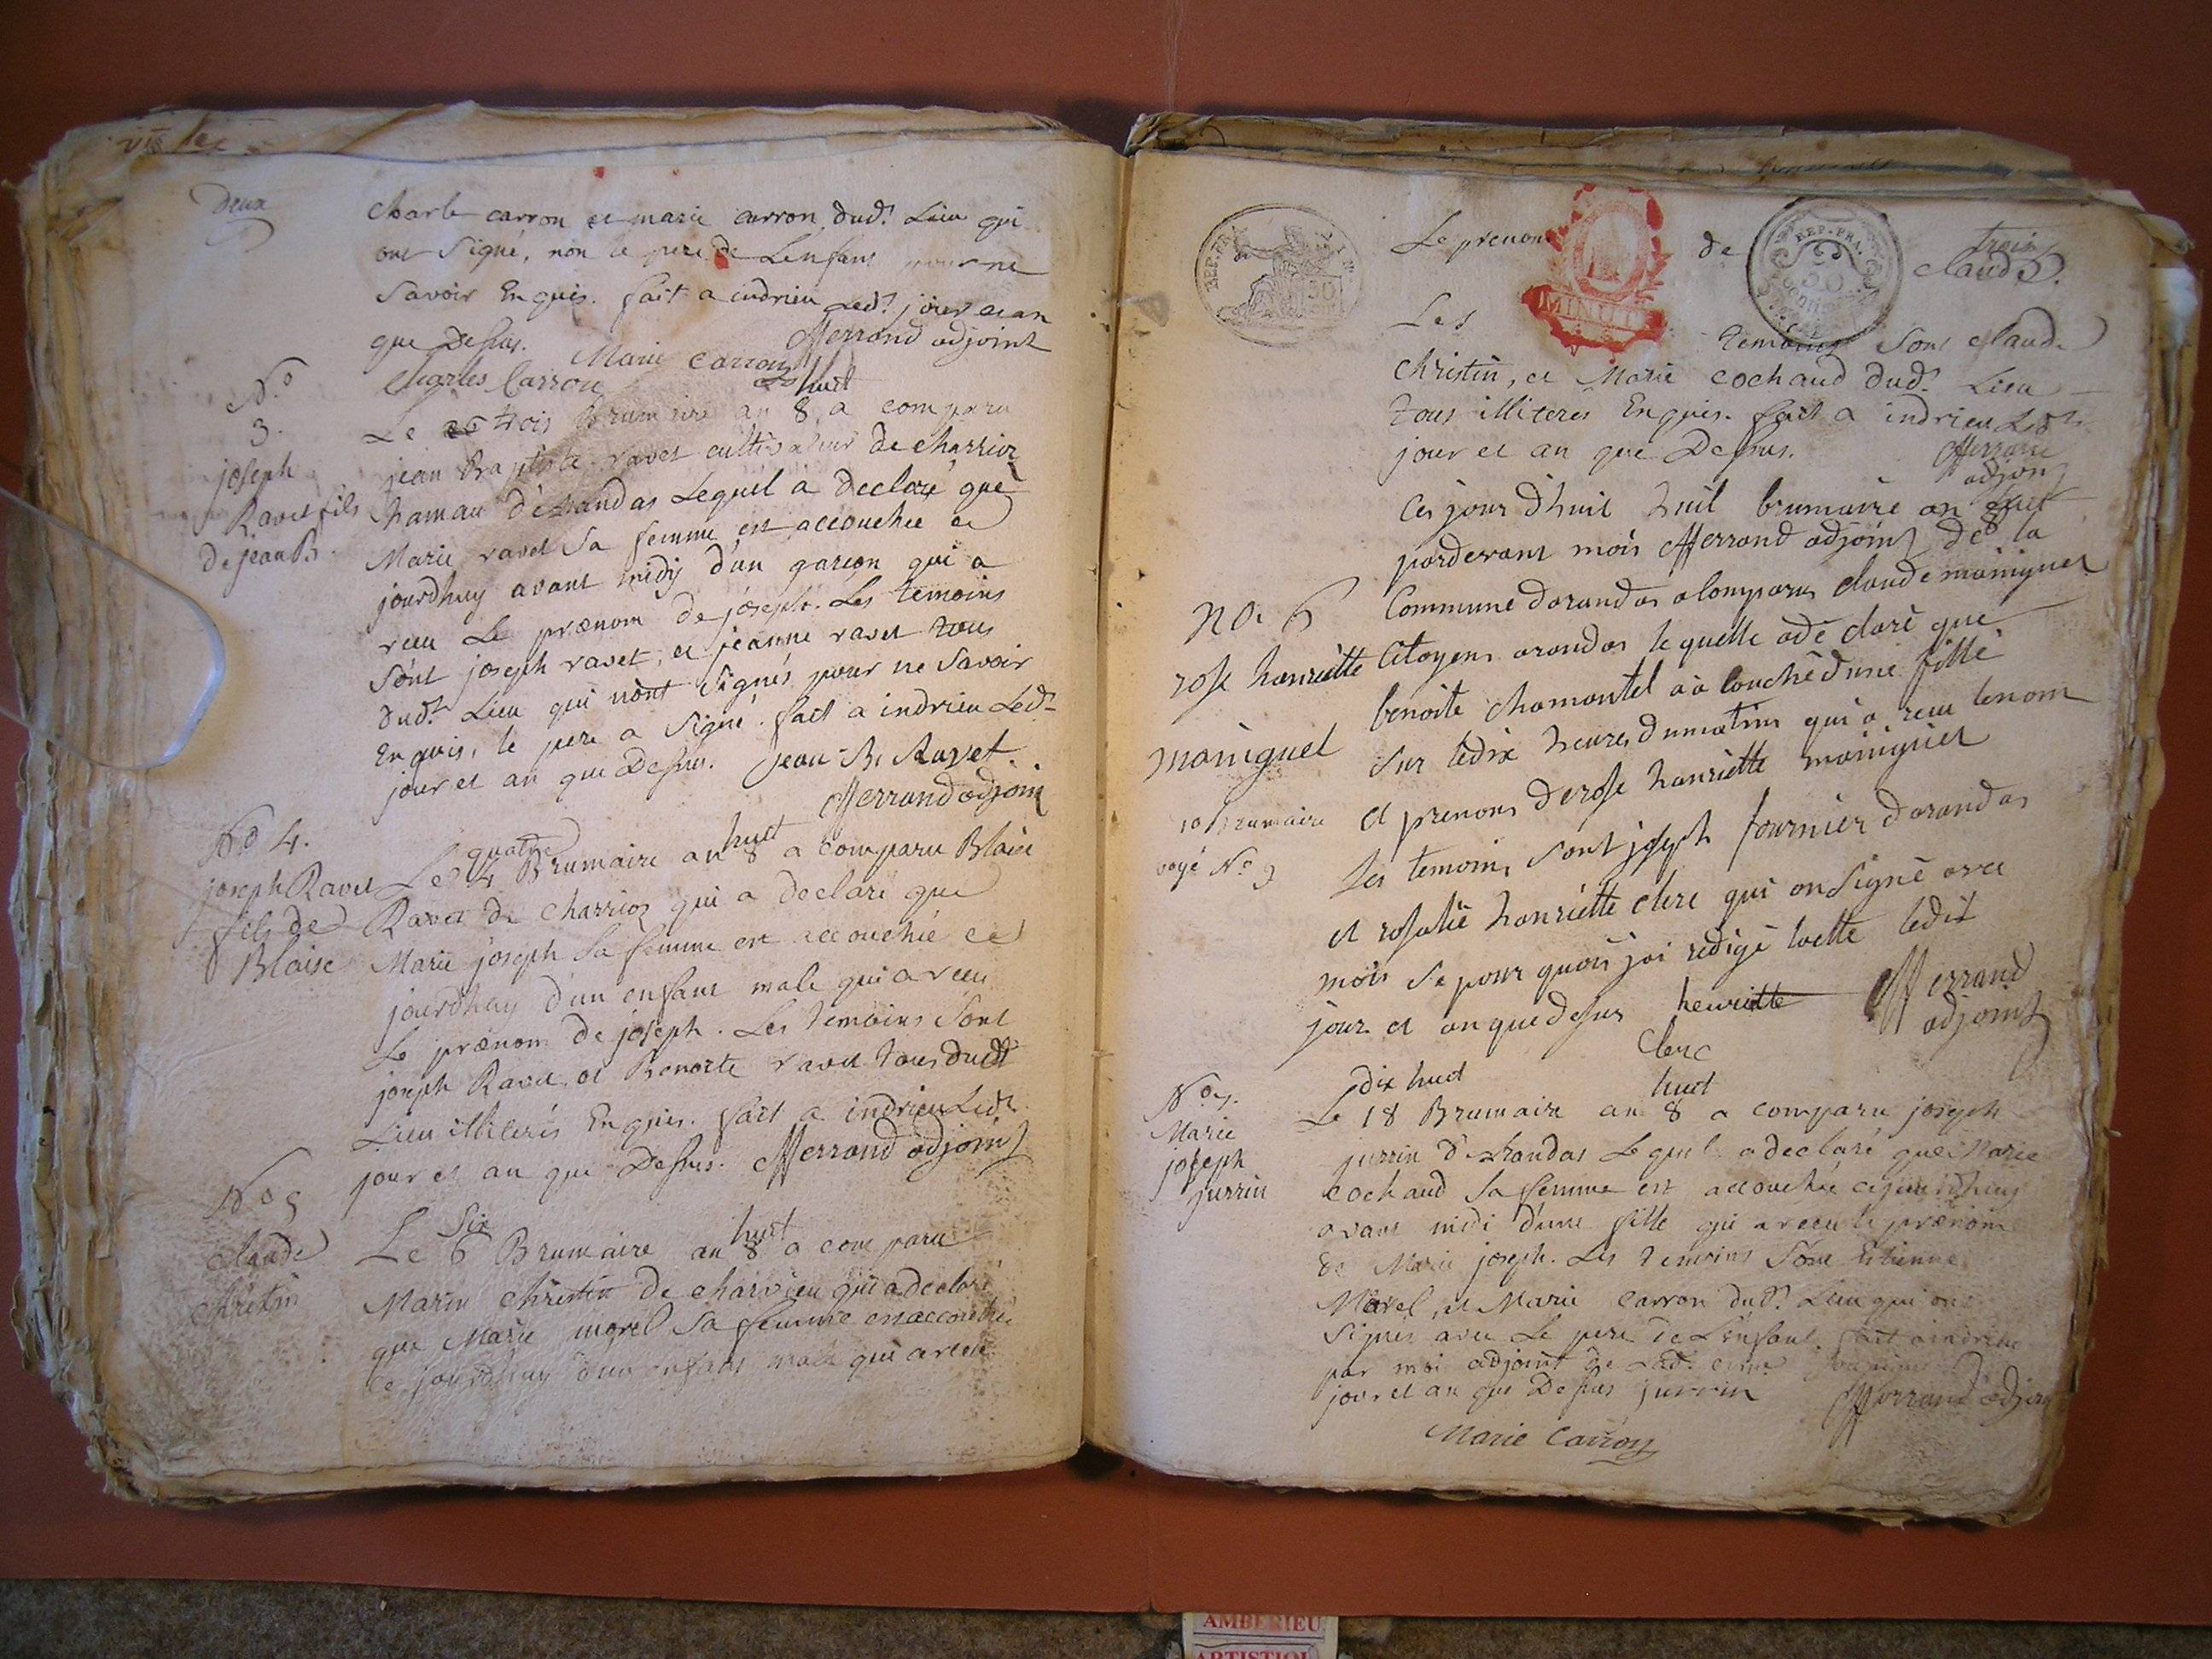 deux
charle carron et marie carron dud.t Lieu qui
ont signé, non le pere de Lenfant pour ne
savoir Enquis. fait a indrieu Led.t jour et an
que Dessus. Marie Carron fferrand adjoint
Charles Carron
N.o
3.
joseph
Ravet fils
de jean B.
huit
Le trois Brumaire an 8 a comparu
jean Baptiste ravet cultivateur de charrioz
hamau d'arandas Lequel a declaré que
Marie ravet sa femme est accouchee ce
jourdhuy avant midy d'un garcon qui a
recu Le prænom de joseph. Les temoins
sont joseph ravet, et jeanne ravet tous
dud.t Lieu qui nont signés pour ne savoir
Enquis, le pere a signé. fait a indrieu Led.t
jour et an que Dessus. jean B. Ravet.
fferrand adjoin
N.o 4.
joseph Ravet
fils de
Blaise
quatre huit
Le 4 Brumaire an 8 a comparu Blaise
Ravet de charrioz qui a declaré que
Marie joseph sa femme est accouchée ce
jourdhuy d'un enfant male qui a recu
Le prænom de joseph. Les temoins sont
joseph Ravet, et Benoite ravet tous dudt
Lieu illiterés Enquis. fait a indrieu Led.t
jour et an que Dessus. fferrand adjoint
N.o 5
claude
christin
six huit
Le 6 Brumaire an 8 a comparu
Marin christin de charvieu qui a declaré
que Marie morel sa femme est accouchée
ce jourdhuy d'un enfant male qui a recu
REP. FRA.
50
MINUTE
REP. FRA.
trois
Le prenom de claude.
Les temoins sont claude
christin, et Marie cochaud dud.t Lieu
tous illiteres Enquis. fait a indrieu Led.t
jour et an que Dessus. fferrand
adjoint
Ces jour dhuit huit brumaire an huit
pardevant mois fferrand adjoint de la
N.o 6
rose hanriette
maniguet
10 Brumaire
voyé N.o 9
Commune darandas a Comparus claude maniguet
Citoyens arandas le quelle adé claré que
benoite chamontel a a Couchè dune fille
sur ledix heures dumatins qui a recu lenom
et prenoms derose hanriette maniguet
les temoins sont joseph fournier darandas
et rosalie hanriette clerc qui on signè avec
mois se pour quois jai redigè lactte ledit
jour et an que desus henriette fferrand
Clerc adjoint
N.o 7.
Marie
joseph
jurrin
dix huit huit
Le 18 Brumaire an 8 a comparu joseph
jurrin d'arandas Lequel a declaré que Marie
cochaud sa femme est accouchée cejourdhuy
avant midi d'une fille qui a recu le prænom
de Marie joseph. Les temoins sont Etienne
Morel, et Marie carron dud.t Lieu qui ont
signés avec Le pere de L'enfant. fait a indrieu
par moi adjoint de Lad.
jour et an que Dessus jurrin fferrand adjoin
Marie Carron
AMBERIEU
ARTISTIQ